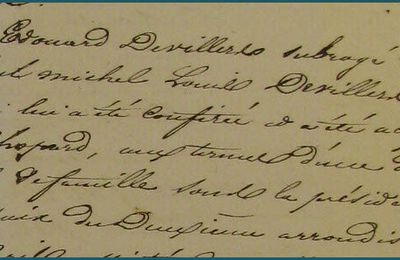 Edouard Devillers subrogé
michel Louis Devillers
lui a été conférée et a été
aux termes d'une
de famille sous la présid
du Deuxième arrondis